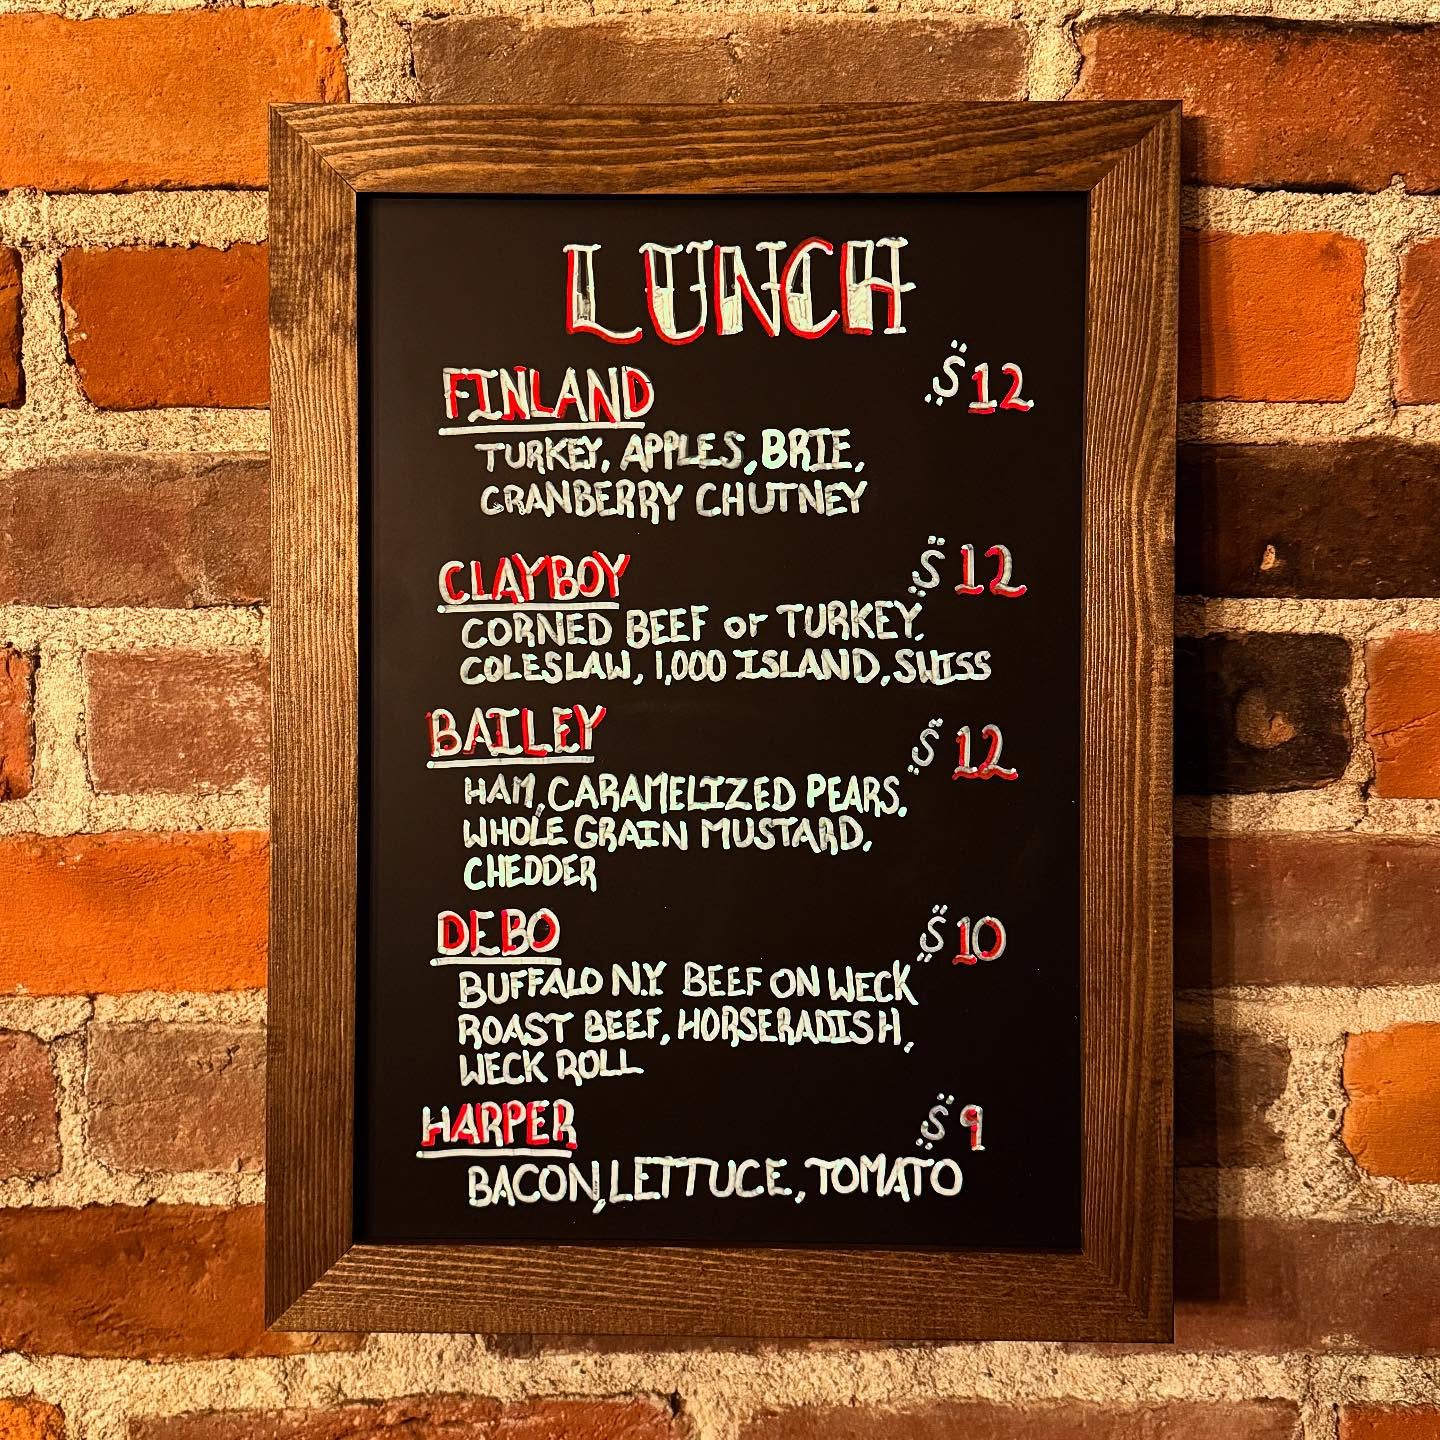 LUNCH
FINLAND $12
TURKEY, APPLES, BRIE,
CRANBERRY CHUTNEY
CLAYBOY $12
CORNED BEEF or TURKEY,
COLESLAW, 1,000 ISLAND, SWISS
BAILEY $12
HAM, CARAMELIZED PEARS,
WHOLE GRAIN MUSTARD,
CHEDDER
DEBO $10
BUFFALO N.Y BEEF ON WECK
ROAST BEEF, HORSERADISH,
WECK ROLL
HARPER $9
BACON, LETTUCE, TOMATO